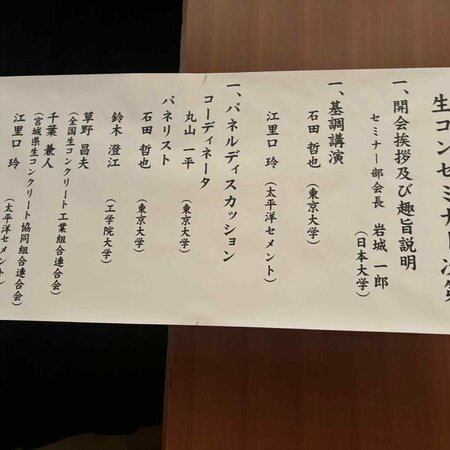 生コンセミナー次第
一、開会挨拶及び趣旨説明
セミナー部会長 岩城 一郎
（日本大学）
一、基調講演
石田 哲也 （東京大学）
江里口 玲 （太平洋セメント）
一、パネルディスカッション
コーディネータ
丸山 一平 （東京大学）
パネリスト
石田 哲也 （東京大学）
鈴木 澄江 （工学院大学）
草野 昌夫
（全国生コンクリート工業組合連合会）
千葉 兼人
（宮城県生コンクリート協同組合連合会）
江里口 玲 （太平洋セメント）